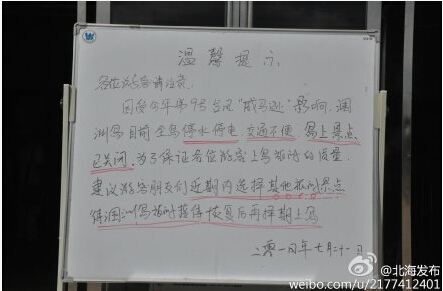 温馨提示
各位游客请注意:
因受今年第9号台风“威马逊”影响,涠
洲岛目前全岛停水停电,交通不便,岛上景点
已关闭。为了保证各位游客上岛旅游的质量,
建议游客朋友们近期内选择其他旅游景点
待涠洲岛旅游接待恢复后再择期上岛
二零一四年七月二十一日
@北海发布
weibo.com/u/2177412401